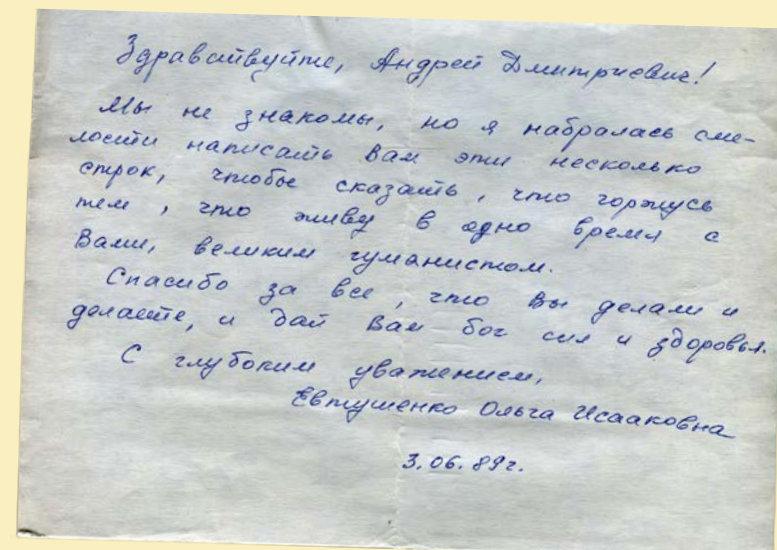 Здравствуйте, Андрей Дмитриевич!
Мы не знакомы, но я набралась сме-
лости написать Вам эти несколько
строк, чтобы сказать, что горжусь
тем, что живу в одно время с
Вами, великим гуманистом.
Спасибо за все, что Вы делали и
делаете, и дай Вам бог сил и здоровья.
С глубоким уважением,
Евтушенко Ольга Исааковна
3.06.89г.